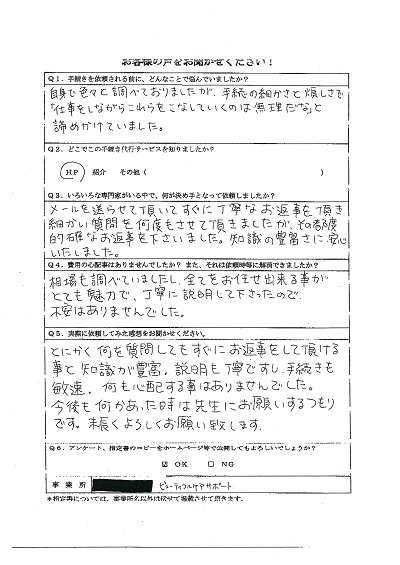 お客様の声をお聞かせください！
Q1．手続きを依頼される前に、どんなことで悩んでいましたか？
自身で色々と調べておりましたが、手続の細かさと煩しさで
「仕事をしながらこれらをこなしていくのは無理だな」と
諦めかけていました。
Q2．どこでこの手続き代行サービスを知りましたか？
HP 紹介 その他（ ）
Q3．いろいろな専門家がいる中で、何が決め手となって依頼しましたか？
メールを送らせて頂いてすぐに丁寧なお返事を頂き
細かい質問を何度もさせて頂きましたが、その都度
的確なお返事を下さいました。知識の豊富さに安心
いたしました。
Q4．費用の心配事はありませんでしたか？また、それは依頼時等に解消できましたか？
相場も調べていましたし、全てをお任せ出来る事が
とても魅力で、丁寧に説明して下さったので、
不安はありませんでした。
Q5．実際に依頼してみた感想をお聞かせください。
とにかく何を質問してもすぐにお返事をして頂ける
事と知識が豊富。説明も丁寧ですし、手続きも
敏速。何も心配する事はありませんでした。
今後も何かあった時は先生にお願いするつもり
です。末長くよろしくお願い致します。
Q6．アンケート、指定書のコピーをホームページ等で公開してもよろしいでしょうか？
☑ OK □ NG
事業所 ビューティフルケアサポート
＊指定書については、事業所名以外は伏せて掲載させて頂きます。